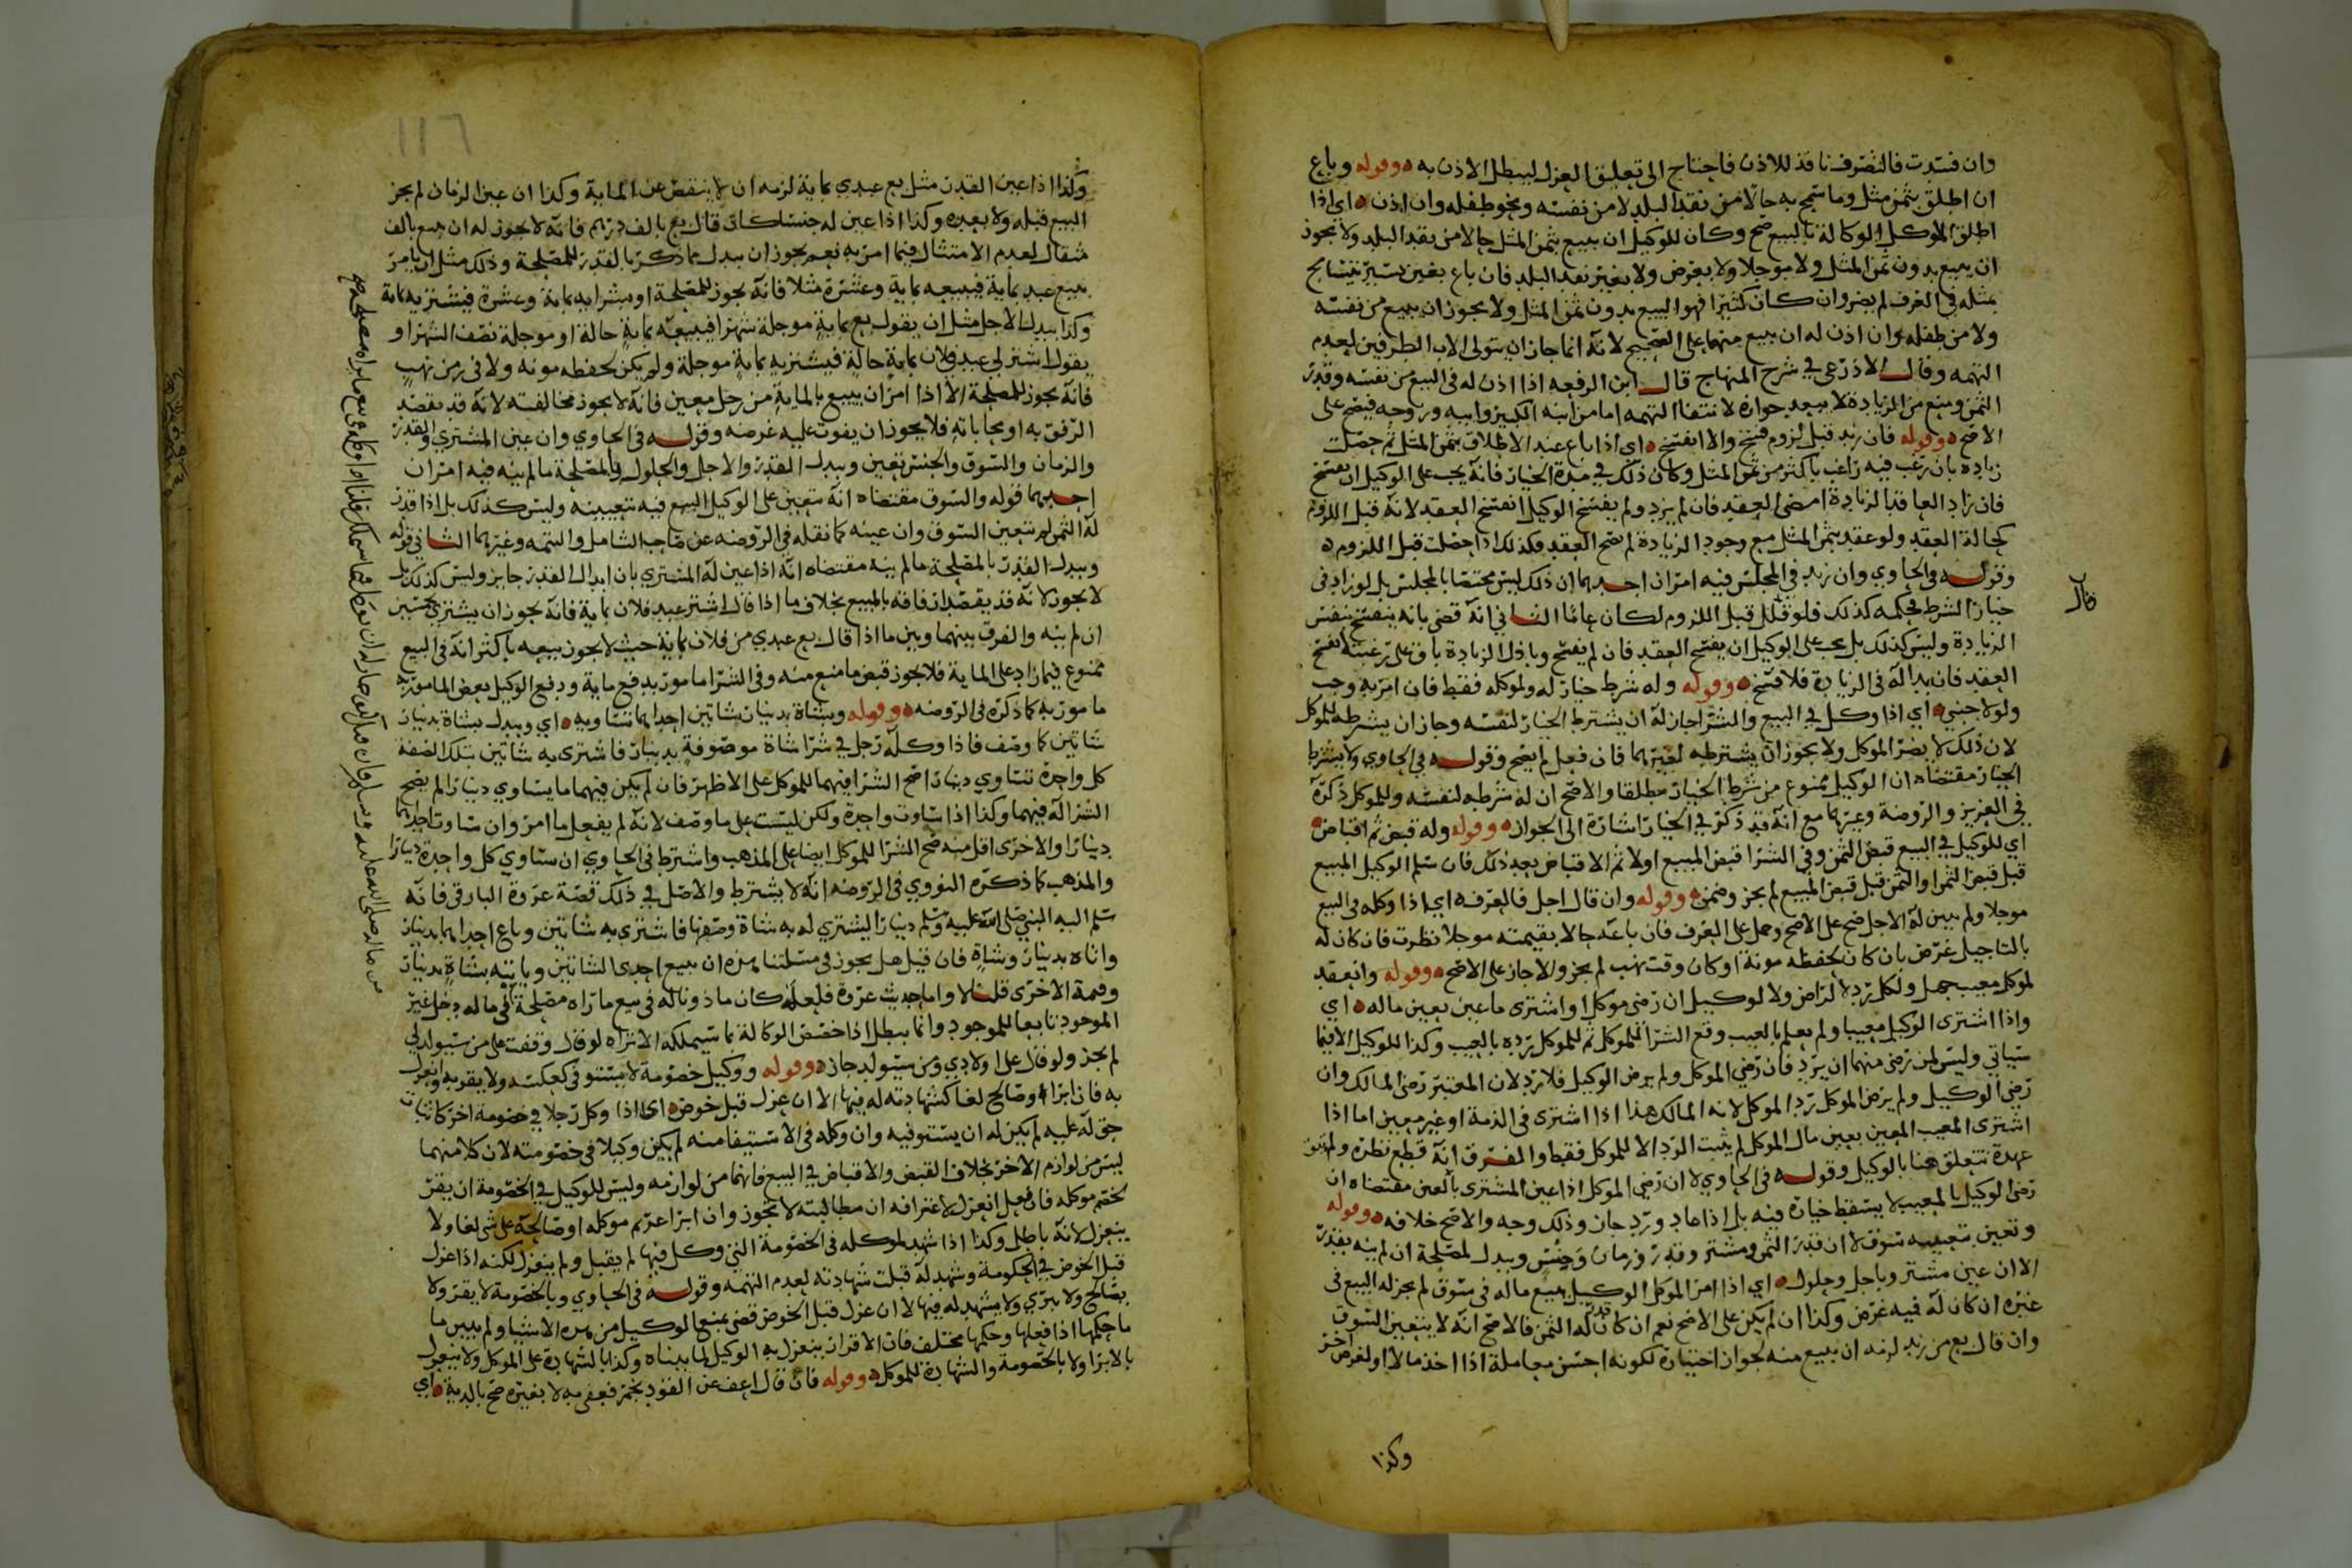 وان فسدت فالتصرف نافذ للاذن فاحتاج الى تعليق العزل ليبطل الاذن به ه وقوله وباع
ان اطلق بثمن مثل وما سمح به حالا من نقد البلد لا من نفسه ونحو طفله وان اذن ه اى اذا
اطلق الموكل الوكالة بالبيع صح وكان للوكيل ان يبيع بثمن المثل حالا من نقد البلد ولا يجوز
ان يبيع بدون ثمن المثل ولا موجلا ولا بعرض ولا بغير نقد البلد فان باع بغبن يسير يتسامح
بمثله في العرف لم يضر وان كان كثيرا فهو البيع بدون ثمن المثل ولا يجوز ان يبيع من نفسه
ولا من طفله وان اذن له ان يبيع منهما على الصحيح لانه انما جاز ان يتولى الاب الطرفين لعدم
التهمه وقال الاذرعي في شرح المنهاج قال ابن الرفعه اذا اذن له في البيع من نفسه وقدر
الثمن ومنع من الزيادة لا يبعد جوازه لانتفا التهمه اما من ابنه الكبير وابيه وزوجه فيصح على
الاصح ه وقوله فان زيد قبل لزوم فسخ والا انفسخ ه اي اذا باع عند الاطلاق بثمن المثل ثم حصلت
زيادة بان رغب فيه راغب باكثر من ثمن المثل وكان ذلك في مدة الخيار فانه يجب على الوكيل ان يفسخ
فان زاد العاقد الزيادة امضى العقد فان لم يزد ولم يفسخ الوكيل انفسخ العقد لانه قبل اللزوم
كحالة العقد ولو عقد بثمن المثل مع وجود الزيادة لم يصح العقد فكذلك اذا حصلت قبل اللزوم ه
وقوله في الحاوي وان زيد في المجلس فيه امران احدهما ان ذلك ليس مختصا بالمجلس بل لو زاد في
خيار الشرط فحكمه كذلك فلو قال قبل اللزوم لكان عاما الثاني انه قضى بانه ينفسخ بنفس
الزيادة وليس كذلك بل يجب على الوكيل ان يفسخ العقد فان لم يفسخ وباذل الزيادة باق على رغبته انفسخ
العقد فان بدا له في الزيادة فلا فسخ ه وقوله وله شرط خيار له ولموكله فقط فان امر به وجب
ولو لاجنبي ه اي اذا وكل في البيع والشرا جاز له ان يشترط الخيار لنفسه وجاز ان يشرطه للموكل
لان ذلك لا يضر الموكل ولا يجوز ان يشترطه لغيرهما فان فعل لم يصح وقوله في الحاوي ولا يشترط
الخيار مقتضاه ان الوكيل ممنوع من شرط الخيار مطلقا والاصح ان له شرطه لنفسه وللموكل ذكره
في العزيز والروضة وغيرهما مع انه قد ذكر في الخيار اشارة الى الجواز ه وقوله وله قبض ثم اقباض ه
اي للوكيل في البيع قبض الثمن وفي الشرا قبض المبيع اولا ثم الاقباض بعد ذلك فان سلم الوكيل المبيع
قبل قبض الثمن او الثمن قبل قبض المبيع لم يجز وضمن ه وقوله وان قال اجل فالعرف ه اي اذا وكله في البيع
موجلا ولم يبين له الاجل صح على الاصح وحمل على العرف فان باعه حالا بقيمته موجلا نظرت فان كان له
بالتاجيل غرض بان كان لحفظه مونة او كان وقت نهب لم يجز والا جاز على الاصح ه وقوله وانعقد
لموكل معيب جهل ولكل رد لا لراض ولا لوكيل ان رضى موكل او اشترى ما عين بعين ماله ه اي
واذا اشترى الوكيل معيبا ولم يعلم بالعيب وقع الشرا للموكل ثم للموكل رده بالعيب وكذا للوكيل الا فيما
سياتي وليس لمن رضى منهما ان يرد فان رضي الموكل ولم يرض الوكيل فلا رد لان المعتبر رضى المالك وان
رضي الوكيل ولم يرض الموكل رد الموكل لانه المالك هذا اذا اشترى في الذمة او غير معين اما اذا
اشترى المعيب المعين بعين مال الموكل لم يثبت الرد الا للموكل فقط والفرق انه قطع نظره ولم تبق
عهدة تتعلق هنا بالوكيل وقوله في الحاوي لا ان رضي الموكل اذا عين المشترى بالعين مقتضاه ان
رضى الوكيل بالمعيب لا يسقط خياره فيه بل اذا عاد ورد جاز وذلك وجه والاصح خلافه ه وقوله
وتعين بتعيينه سوق لا ان قدر الثمن ومشتر وقدر وزمان وجنس وبدل لمصلحة ان لم ينه بقدر
الا ان عين مشتر وباجل وحلول ه اي اذا امر الموكل الوكيل ببيع ماله في سوق لم يجز له البيع في
غيره ان كان له فيه غرض وكذا ان لم يكن على الاصح نعم ان كان قدر له الثمن فالاصح انه لا يتعين السوق
وان قال بع من زيد لزمه ان يبيع منه لجواز اختياره لكونه احسن معاملة اذا اخذ مالا او لغرض اخر
قال
وكذا
١١٦
وكذا اذا عين القدر مثل بع عبدي بماية لزمه ان لا ينقص عن الماية وكذا ان عين الزمان لم يجز
البيع قبله ولا بعده وكذا اذا عين له جنسا كان قال بع بالف درهم فانه لا يجوز له ان يبيع بالف
مثقال لعدم الامتثال فيما امر به نعم يجوز ان يبدل ما ذكر بالقدر للمصلحة وذلك مثل ان يامر
ببيع عبد بماية فيبيعه بماية وعشرة مثلا فانه يجوز للمصلحة او بشرايه بماية وعشرة فيشتريه بماية
وكذا يبدل الاجل مثل ان يقول بع بماية موجلة شهرا فيبيعه بماية حالة او موجلة نصف الشهر او
يقول اشتر لي عبد فلان بماية حالة فيشتريه بماية موجلة ولم يكن لحفظه مونه ولا في زمن نهب
فانه يجوز للمصلحة الا اذا امر ان يبيع بالماية من رجل معين فانه لا يجوز مخالفته لانه قد يقصد
الرفق به او محاباته فلا يجوز ان يفوت عليه غرضه وقوله في الحاوي وان عين المشتري والقدر
والزمان والسوق والجنس تعين ويبدل القدر والاجل والحلول بالمصلحة ما لم ينه فيه امران
احدهما قوله والسوق مقتضاه انه يتعين على الوكيل البيع فيه بتعيينه وليس كذلك بل اذا قدر
له الثمن لم يتعين السوق وان عينه كما نقله في الروضه عن صاحب الشامل والتتمه وغيرهما الثاني قوله
ويبدل القدر بالمصلحة ما لم ينه مقتضاه انه اذا عين له المشتري بان ابدال القدر جايز وليس كذلك بل
لا يجوز لانه قد يقصد ارفاقه بالمبيع بخلاف ما اذا قال اشتر عبد فلان بماية فانه يجوز ان يشتري بخمسين
ان لم ينه والفرق بينهما وبين ما اذا قال بع عبدي من فلان بماية حيث لا يجوز بيعه باكثر انه في البيع
ممنوع فيما زاد على الماية فلا يجوز قبض ما منع منه وفي الشرا مامور بدفع ماية ودفع الوكيل بعض المامور به
مامور به كما ذكره في الروضه ه وقوله وبشاة بدينار شاتين احداهما تساويه ه اي ويبدل بشاة بدينار
شاتين كما وصف فاذا وكله رجل في شرا شاة موصوفة بدينار فاشترى به شاتين بتلك الصفة
كل واحدة تساوي دينارا صح الشرا فيهما للموكل على الاظهر فان لم يكن فيهما ما يساوي دينارا لم يصح
الشرا له فيهما وكذا اذا ساوت واحدة ولكن ليست على ما وصف لانه لم يفعل ما امر وان ساوت احداهما
دينارا والاخرى اقل منه صح الشرا للموكل ايضا على المذهب واشترط في الحاوي ان تساوي كل واحدة دينارا
والمذهب كما ذكره النووي في الروضه انه لا يشترط والاصل في ذلك قصة عروة البارقي فانه
سلم اليه النبي صلى الله عليه وسلم دينارا ليشتري له به شاة وصفها فاشترى به شاتين وباع احداهما بدينار
واتاه بدينار وشاة فان قيل هل يجوز في مسلتنا هذه ان يبيع احدى الشاتين وياتيه بشاة بدينار
وقيمة الاخرى قلنا لا واما حديث عروة فلعله كان ماذونا له في بيع ما راه مصلحة في ماله دخل غير
الموجود تابعا للموجود وانما يبطل اذا خصص الوكالة بما سيملكه الا تراه لو قال وقفت على من سيولد لي
لم يجز ولو قال على اولادي ومن سيولد جاز ه وقوله ووكيل خصومة لا يستوفي كعكسه ولا يقر به وانعزل
به فان ابرا او صالح لغا كشهادته له فيها الا ان عزل قبل خوض ه اى اذا وكل رجلا في خصومة اخر كاثبات
حق له عليه لم يكن له ان يستوفيه وان وكله في الاستيفا منه لم يكن وكيلا في خصومته لان كلا منهما
ليس من لوازم الاخر بخلاف القبض والاقباض في البيع فانهما من لوازمه وليس للوكيل في الخصومة ان يقر
لخصم موكله فان فعل انعزل لاعترافه ان مطالبته لا تجوز وان ابرا غريم موكله او صالحه على شى لغا ولا
ينعزل لانه باطل وكذا اذا شهد لموكله في الخصومة التي وكل فيها لم يقبل ولم ينعزل لكنه اذا عزل
قبل الخوض في الحكومة وشهد له قبلت شهادته لعدم التهمه وقوله في الحاوي وبالخصومة لا يقر ولا
يصالح ولا يبري ولا يشهد له فيها لا ان عزل قبل الخوض قضى بمنع الوكيل من هذه الاشيا ولم يبين ما
حكمها اذا فعلها وحكمها مختلف فان الاقرار ينعزل به الوكيل لما بيناه وكذا بالشهادة على الموكل ولا ينعزل
بالابرا ولا بالخصومة والشهادة للموكل ه وقوله فان قال اعف عن القود بخمر فعفى به لا بغيره صح بالدية ه اي